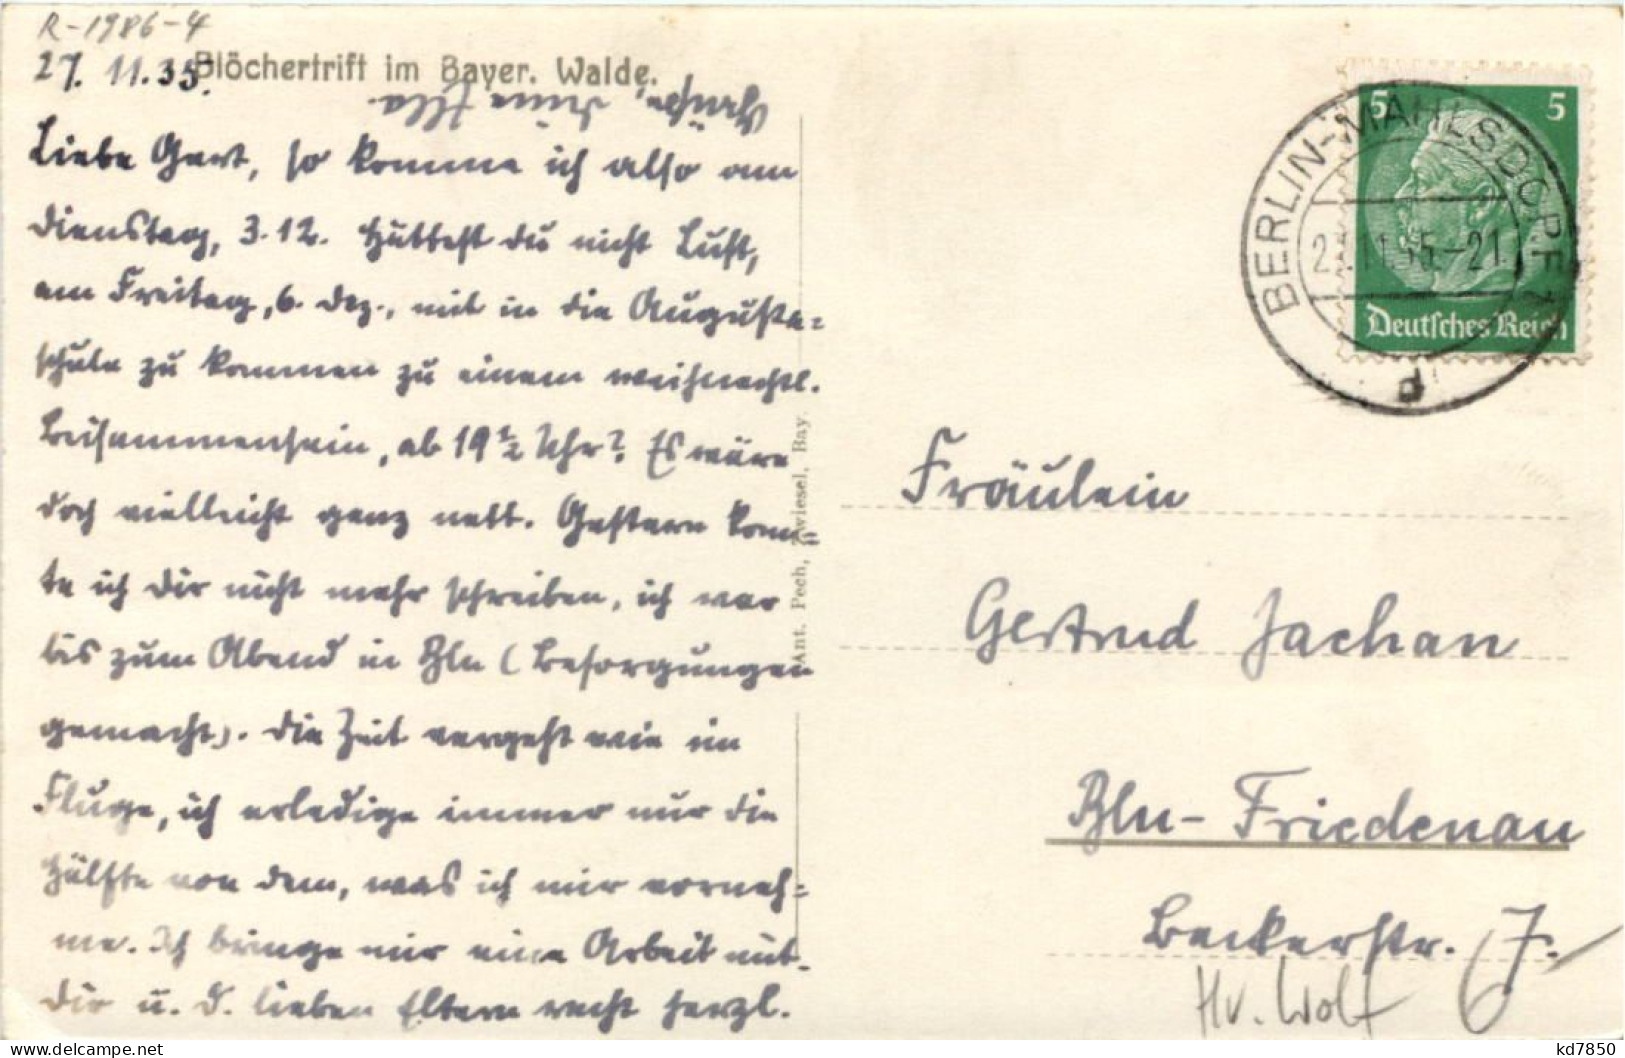 R-1986-4
27. 11. 35.
Blöchertrift im Bayer. Walde.
Liebe Gert, so komme ich also am
Dienstag, 3.12. Hättest du nicht Lust,
am Freitag, 6. Dez., mit in die Augusta=
schule zu kommen zu einem weihnachtl.
Beisammensein, ab 19 ½ Uhr? Es wäre
doch vielleicht ganz nett. Gestern konn=
te ich Dir nicht mehr schreiben, ich war
bis zum Abend in Bln (Besorgungen
gemacht). Die Zeit vergeht wie im
Fluge, ich erledige immer nur die
Hälfte von dem, was ich mir vorneh=
me. Ich bringe mir eine Arbeit mit.
Dir u. d. lieben Eltern recht herzl.
Grüße, Deine Illa.
Ant. Pech, Zwiesel, Bay.
5 5
Deutsches Reich
BERLIN-MAHLSDORF 1
27.11.35-21
d
Fräulein
Gertrud Jachan
Bln-Friedenau
Beckerstr. 7.
6
Hv. Wolf
kd7850